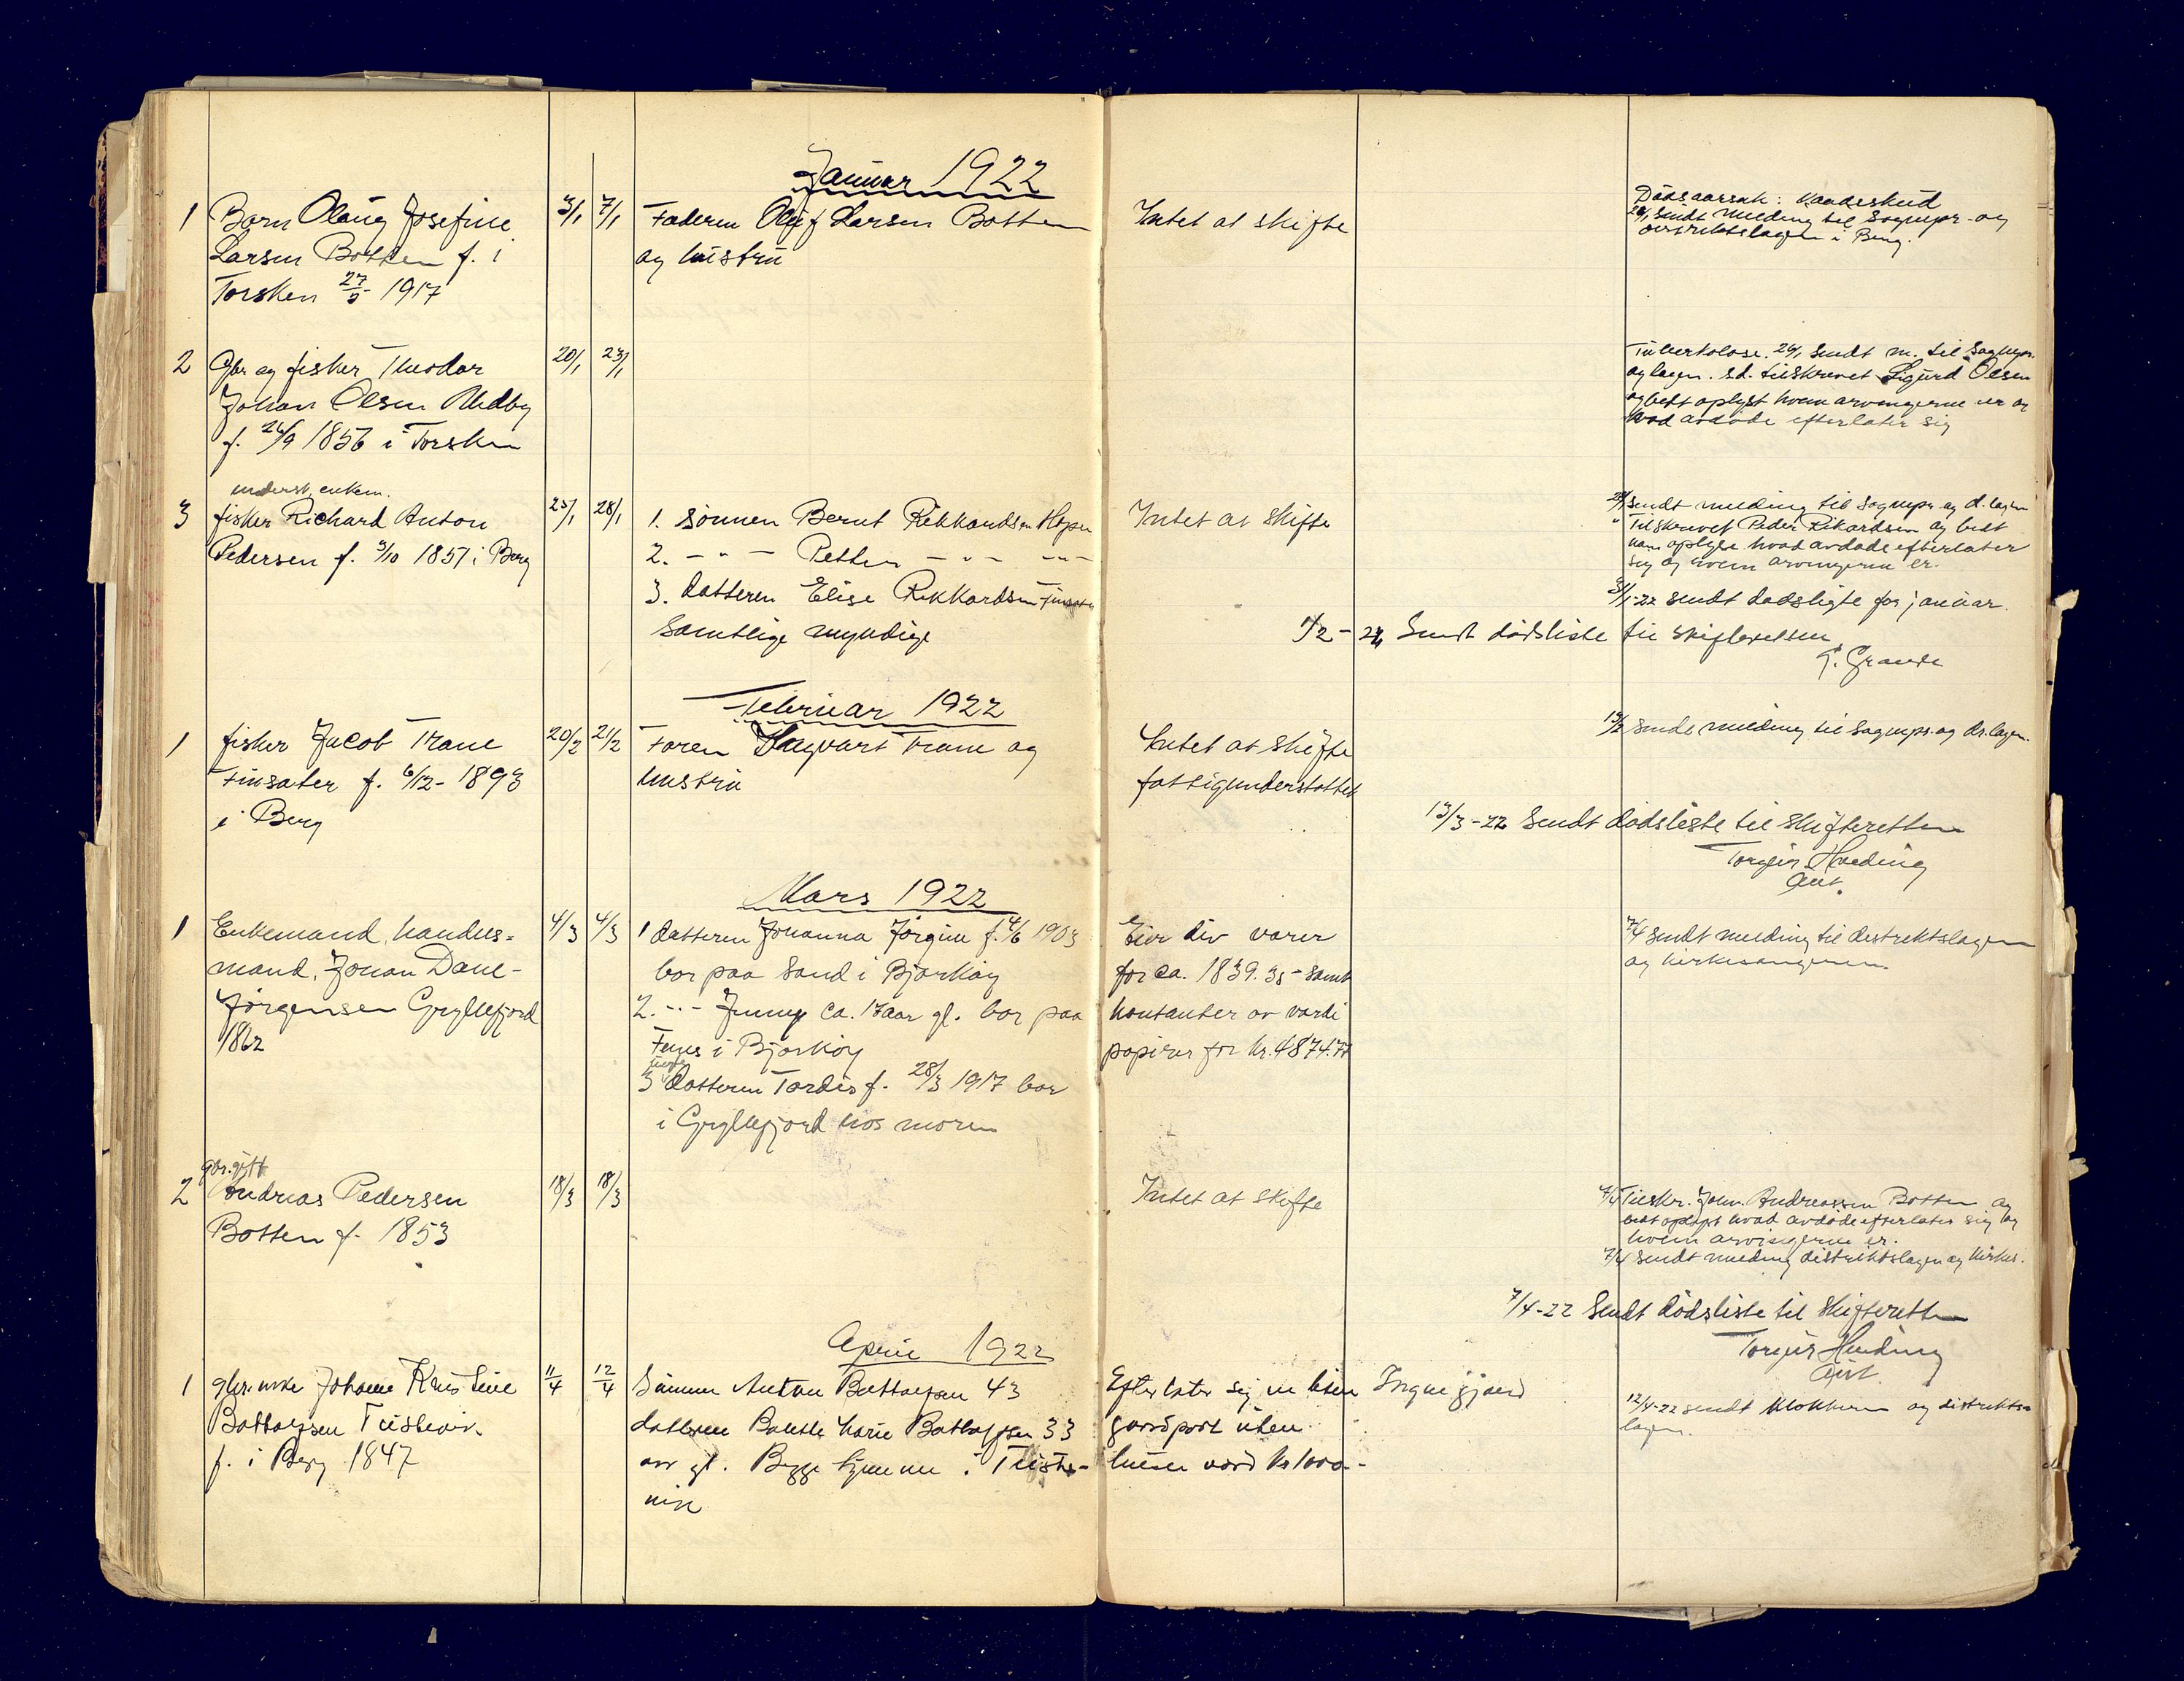 Januar 1922
1 Barn Olaug Josefine 3/1 7/1 Faderen Oluf Larsen Botten Intet at skifte
Larsen Botten f. i og hustru
Torsken 27/5 1917
Dødsaarsak: Vaadeskud
sendt melding til Sognepr. og
distriktslægen i Berg.
2 Gbr og fisker Theodor 20/1 23/1
Johan Olsen Medby
f. 26/9 1856 i Torsken
Tuberkolose. 24/1 sendt m. til Sognepr.
og lægen. s.d. tilskrevet Sigurd Olsen
og bedt oplyst hvem arvingerne er og
hvad avdøde efterlater sig
underst. enkem.
3 fisker Richard Anton 25/1 28/1 1. Sønnen Bernt Rikkardsen Hopen Intet at skifte
Pedersen f. 3/10 1851 i Berg 2. - " - Petter - " - - " -
3. datteren Elise Rikkardsen Finsæter
Samtlige myndige
sendt melding til Sognepr. og d.lægen
" Tilskrevet Peder Rikardsen og bedt
ham oplyse hvad avdøde efterlater
sig og hvem arvingerne er.
31/1-22 sendt dødsliste for januar.
1/2 - 22 Sendt dødsliste til skifteretten
G. Grande
Februar 1922
1 fisker Jacob Trane 20/2 21/2 Faren Hagvart Trane og Intet at skifte
Finsæter f. 6/12 - 1893 hustru fattigunderstøttet
i Berg
sendt melding til Sognepr. og ds.lægen.
13/3-22 Sendt dødsliste til skifteretten
Torgeir Hæding
Ant.
Mars 1922
1 Enkemand, handels= 4/3 4/3 1 datteren Johanna Jørgine f. 4/6 1903 Eier div varer
mand, Johan Dane- bor paa Sand i Bjarkøy for ca. 1839.35 - samt
Jørgensen Gryllefjord 2. - " - Jenny ca. 17 aar gl. bor paa kontanter og verdi
1862 Fenes i Bjarkøy papirer for kr. 4874.77
3 datteren Tordis f. 28/3 1917 bor
i Gryllefjord hos moren
7/4 sendt melding til distriktslægen
og kirkesangeren.
gbr. gift
2 Andreas Pedersen 18/3 18/3 Intet at skifte
Botten f. 1853
7/4 Tilskr. Joh. Andreassen Botten og
bedt oplyst hvad avdøde efterlater sig og
hvem arvingerne er.
7/4 sendt melding distriktslægen og kirkes.
7/4-22 Sendt dødsliste til skifteretten
Torgeir Hæding
Ant.
April 1922
1 gbr. enke Johanne Kristine 11/4 12/4 Sønnen Anton Bottolfsen 43 Efterlater sig en liten Ingen gjæld
Bottolfsen Teistevik datteren Marie Bottolfsen 33 gaardpart uten
f. i Berg 1847 aar gl. Begge hjemme i Teiste- huser værd kr 1000.-
vik
12/4-22 sendt klokkeren og distrikts=
lægen.